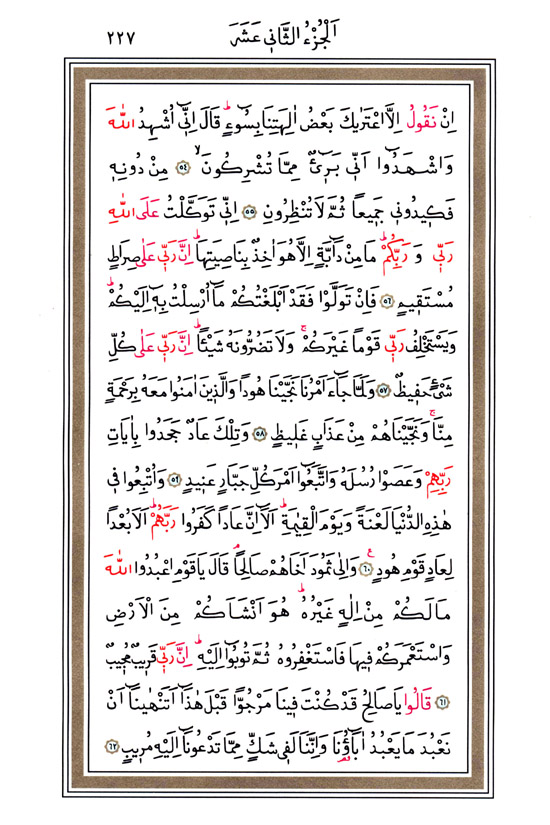 اَلْجُزْءُ الثَّانٖي عَشَرَ ٢٢٧
اِنْ نَقُولُ اِلَّا اعْتَرٰيكَ بَعْضُ اٰلِهَتِنَا بِسُوءٍ قَالَ اِنّٖٓي اُشْهِدُ اللّٰهَ
وَاشْهَدُٓوا اَنّٖي بَرٖٓيءٌ مِمَّا تُشْرِكُونَ ﴿٥٤﴾ مِنْ دُونِهٖ
فَكٖيدُونٖي جَمٖيعاً ثُمَّ لَا تُنْظِرُونِ ﴿٥٥﴾ اِنّٖي تَوَكَّلْتُ عَلَى اللّٰهِ
رَبّٖي وَرَبِّكُمْ مَا مِنْ دَٓابَّةٍ اِلَّا هُوَ اٰخِذٌ بِنَاصِيَتِهَا اِنَّ رَبّٖي عَلٰى صِرَاطٍ
مُسْتَقٖيمٍ ﴿٥٦﴾ فَاِنْ تَوَلَّوْا فَقَدْ اَبْلَغْتُكُمْ مَٓا اُرْسِلْتُ بِهٖٓ اِلَيْكُمْ
وَيَسْتَخْلِفُ رَبّٖي قَوْماً غَيْرَكُمْ وَلَا تَضُرُّونَهُ شَيْـٔاً اِنَّ رَبّٖي عَلٰى كُلِّ
شَيْءٍ حَفٖيظٌ ﴿٥٧﴾ وَلَمَّا جَٓاءَ اَمْرُنَا نَجَّيْنَا هُوداً وَالَّذٖينَ اٰمَنُوا مَعَهُ بِرَحْمَةٍ
مِنَّا وَنَجَّيْنَاهُمْ مِنْ عَذَابٍ غَلٖيظٍ ﴿٥٨﴾ وَتِلْكَ عَادٌ جَحَدُوا بِاٰيَاتِ
رَبِّهِمْ وَعَصَوْا رُسُلَهُ وَاتَّبَعُٓوا اَمْرَ كُلِّ جَبَّارٍ عَنٖيدٍ ﴿٥٩﴾ وَاُتْبِعُوا فٖي
هٰذِهِ الدُّنْيَا لَعْنَةً وَيَوْمَ الْقِيٰمَةِ اَلَٓا اِنَّ عَاداً كَفَرُوا رَبَّهُمْ اَلَا بُعْداً
لِعَادٍ قَوْمِ هُودٍ ﴿٦٠﴾ وَاِلٰى ثَمُودَ اَخَاهُمْ صَالِحاً قَالَ يَا قَوْمِ اعْبُدُوا اللّٰهَ
مَا لَكُمْ مِنْ اِلٰهٍ غَيْرُهُ هُوَ اَنْشَاَكُمْ مِنَ الْاَرْضِ
وَاسْتَعْمَرَكُمْ فٖيهَا فَاسْتَغْفِرُوهُ ثُمَّ تُوبُٓوا اِلَيْهِ اِنَّ رَبّٖي قَرٖيبٌ مُجٖيبٌ
﴿٦١﴾ قَالُوا يَا صَالِحُ قَدْ كُنْتَ فٖينَا مَرْجُوًّا قَبْلَ هٰذَٓا اَتَنْهٰينَٓا اَنْ
نَعْبُدَ مَا يَعْبُدُ اٰبَٓاؤُنَا وَاِنَّنَا لَفٖي شَكٍّ مِمَّا تَدْعُونَٓا اِلَيْهِ مُرٖيبٍ ﴿٦٢﴾